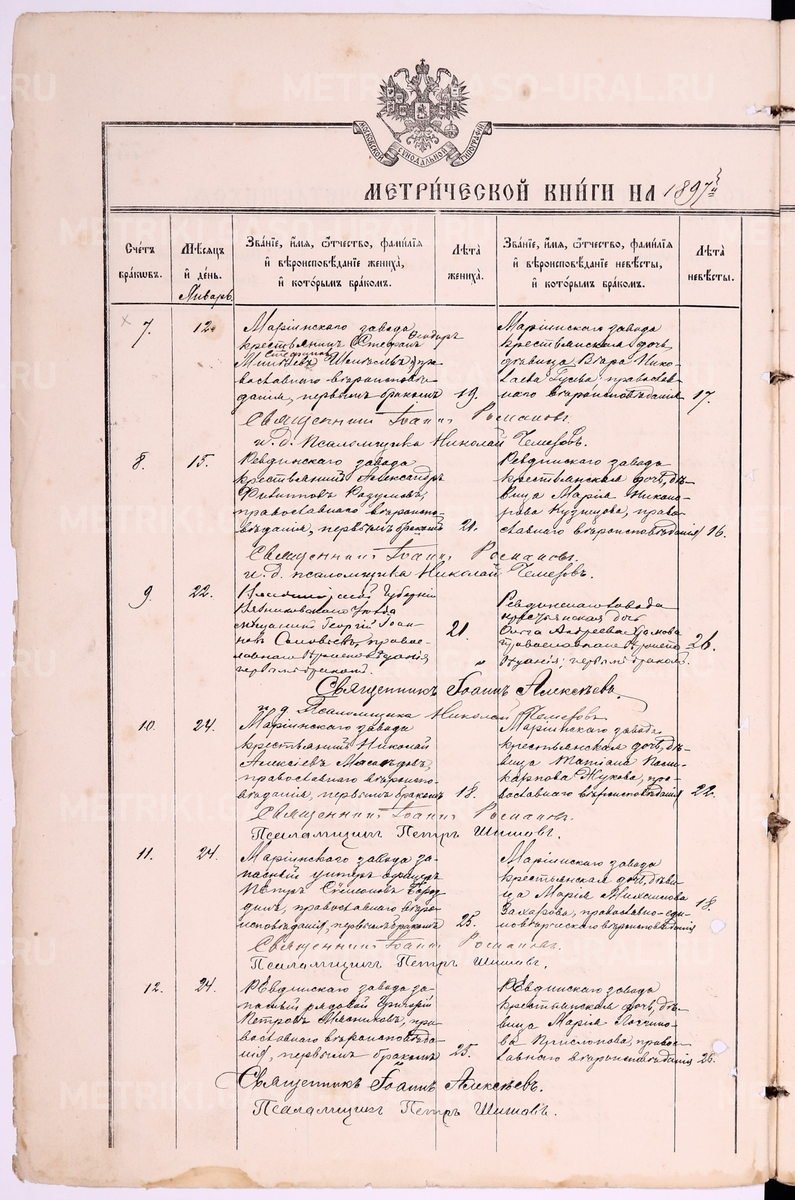 МОСКОВСКОЙ СѴНОДАЛЬНОЙ ТИПОГРАФІИ
МЕТРИ́ЧЕСКОЙ КНИ́ГИ НА 1897 г.
Счетъ браковъ.
Мѣсяцъ и день.
Январь
Зва́нїе, и҆́мя, ѻ҆́тчество, фами́лїя и҆ вѣроисповѣ́данїе жениха̀, и҆ кото́рымъ бра́комъ.
Лѣ́та жениха̀.
Зва́нїе, и҆́мя, ѻ҆́тчество, фами́лїя и҆ вѣроисповѣ́данїе невѣ́сты, и҆ кото́рымъ бра́комъ.
Лѣ́та невѣ́сты.
7.
12
Маріинскаго завода
крестьянинъ Стефанъ Ѳеодоръ
Стефановъ
православнаго вѣроисповѣ-
данія, первымъ бракомъ
19.
Маріинскаго завода
крестьянская дочь,
дѣвица Вѣра Нико-
лаева Гусева, православ-
наго вѣроисповѣданія
17.
Священникъ Іоаннъ Романовъ.
и. д. псаломщика Николай Чемеровъ.
8.
15.
Ревдинскаго завода
крестьянинъ Александръ
Филипповъ
православнаго вѣроиспо-
вѣданія, первымъ бракомъ
21.
Ревдинскаго завода
крестьянская дочь, дѣ-
вица Марія Никано-
рова Кузнецова, право-
славнаго вѣроисповѣданія
16.
Священникъ Іоаннъ Романовъ.
и. д. псаломщика Николай Чемеровъ.
9.
22.
губерніи
Вязниковскаго уѣзда
мѣщанинъ Георгій Іоан-
новъ Соловьевъ, право-
славнаго вѣроисповѣданія
первымъ бракомъ.
21.
Ревдинскаго завода
крестьянская дочь
Ольга Андреева
православнаго вѣроиспо-
вѣданія, первымъ бракомъ.
26.
Священникъ Іоаннъ Алексѣевъ.
и. д. Псаломщика Николай Чемеровъ
10.
24.
Маріинскаго завода
крестьянинъ Николай
Алексіевъ
православнаго вѣроиспо-
вѣданія, первымъ бракомъ
18.
Маріинскаго завода
крестьянская дочь, дѣ-
вица Татіана Поли-
карпова Жукова, пра-
вославнаго вѣроисповѣданія
22.
Священникъ Іоаннъ Романовъ.
Псаломщикъ Петръ Шишовъ.
11.
24.
Маріинскаго завода за-
пасный унтеръ офицеръ
Петръ Симеоновъ Боро-
динъ, православнаго вѣро-
исповѣданія, первымъ бракомъ
25.
Маріинскаго завода
крестьянская дочь, дѣви-
ца Марія Максимова
Захарова, православно-еди-
новѣрческаго вѣроисповѣданія
18.
Священникъ Іоаннъ Романовъ.
Псаломщикъ Петръ Шишовъ.
12.
24.
Ревдинскаго завода за-
пасный рядовой Григорій
Петровъ Мясниковъ, пра-
вославнаго вѣроисповѣда-
нія, первымъ бракомъ
25.
Ревдинскаго завода
крестьянская дочь, дѣ-
вица Марія Логгино-
ва правос-
лавнаго вѣроисповѣданія
26.
Священникъ Іоаннъ Алексѣевъ.
Псаломщикъ Петръ Шишовъ.